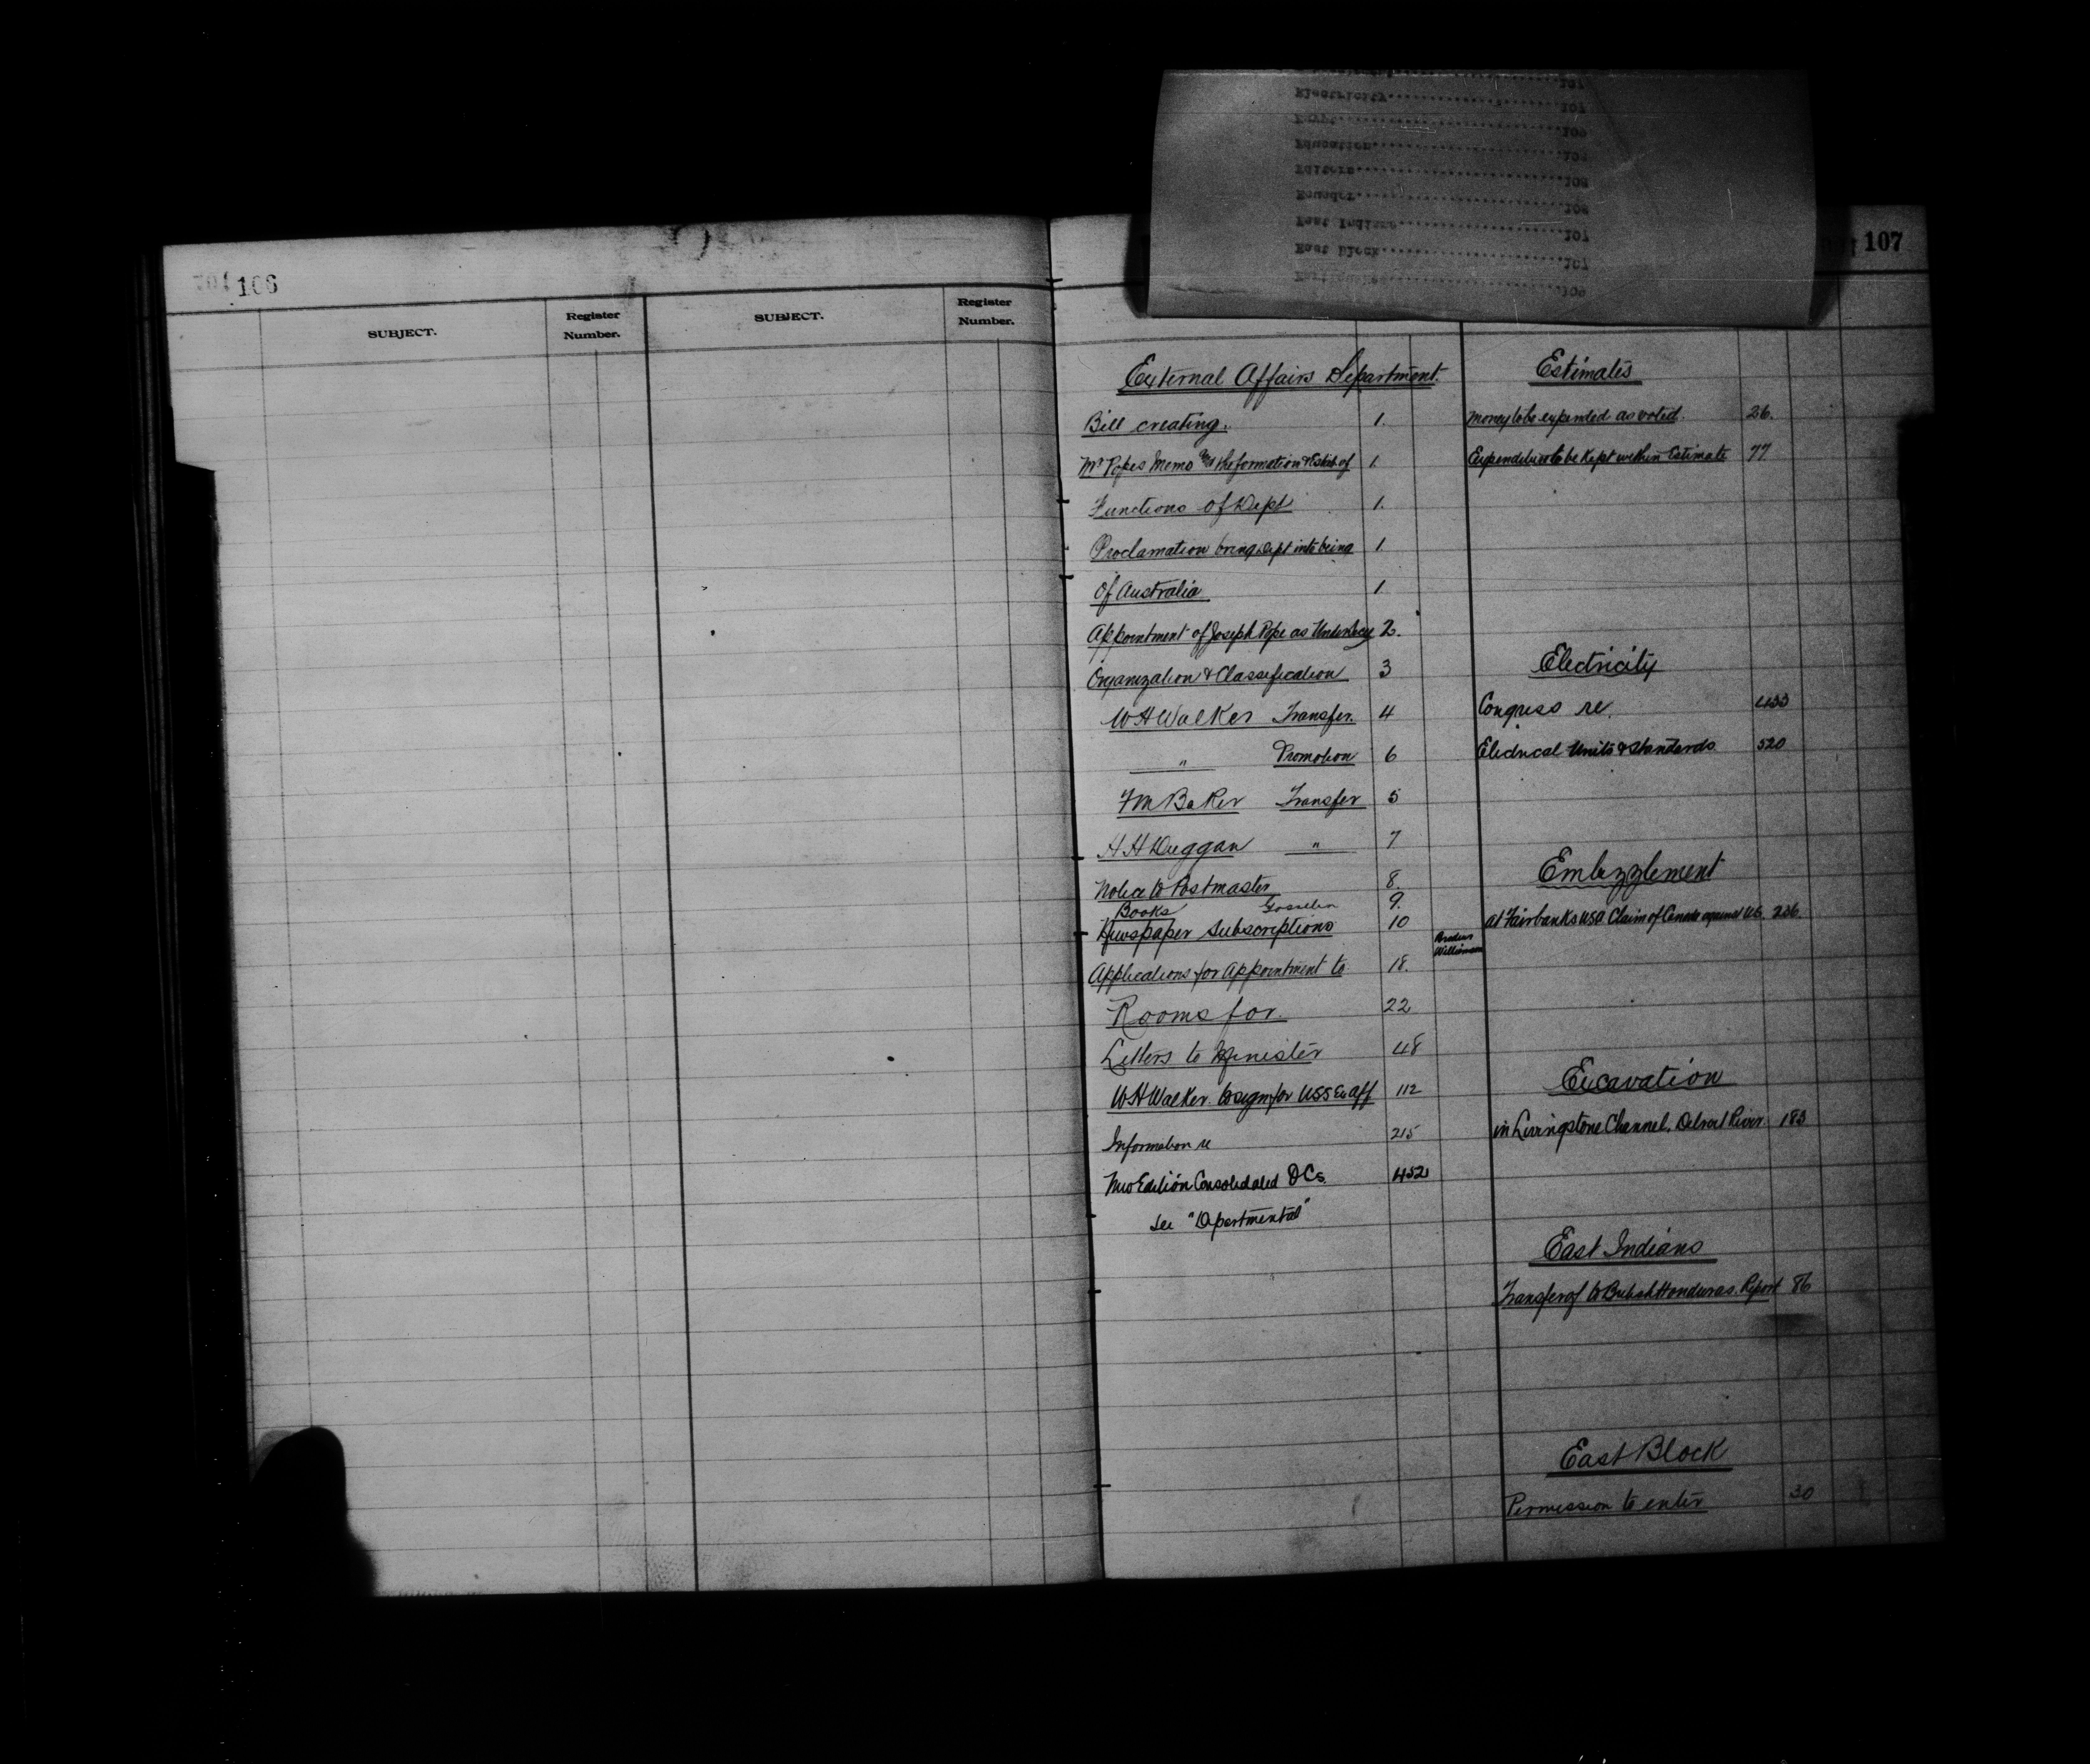 106
SUBJECT.
Register Number.
SUBJECT.
Register Number.
Electricity 107
Egypt 109
Education
Editors 108
Ecuador 108
East Indians 107
East block 107
107
External Affairs Department.
Bill creating. 1.
Mr Popes Memo the formation & Estab of 1
Functions of Dept 1.
Proclamation bring Dept into being 1
Of Australia 1
Appointment of Joseph Pope as Undersecy 2.
Organization & Classification 3
W H Walker Transfer. 4
" Promotion 6
F M Baker Transfer 5
H H Duggan " 7
Notice to Postmaster 8.
Books Gosselin 9.
Newspaper Subscriptions 10
Applications for Appointment to 18.
Williamson
Rooms for. 22
Letters to Minister 48
W H Walker. to sign for USS Ex Aff 112
Information re 215
New Edition Consolidated OCs. 452
See "Departmental"
Estimates
Money to be expended as voted. 26.
Expenditure to be kept within Estimate 77
Electricity
Congress re. 433
Electrical Units & Standards 520
Embezzlement
at Fairbanks USA Claim of Canada against US. 236.
Excavation
in Livingstone Channel, Detroit River 183
East Indians
Transfer of to British Honduras. Report 86
East Block
Permission to enter 30